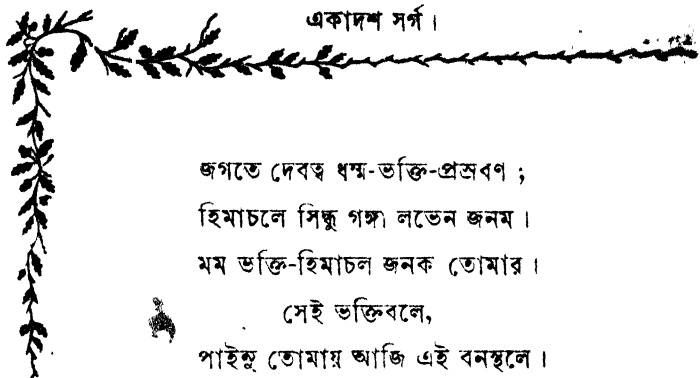 একাদশ সর্গ।
জগতে দেবত্ব ধর্ম্ম-ভক্তি-প্রস্রবণ ;
হিমাচলে সিন্ধু গঙ্গা লভেন জনম।
মম ভক্তি-হিমাচল জনক তোমার।
সেই ভক্তিবলে,
পাইনু তোমায় আজি এই বনস্থলে।